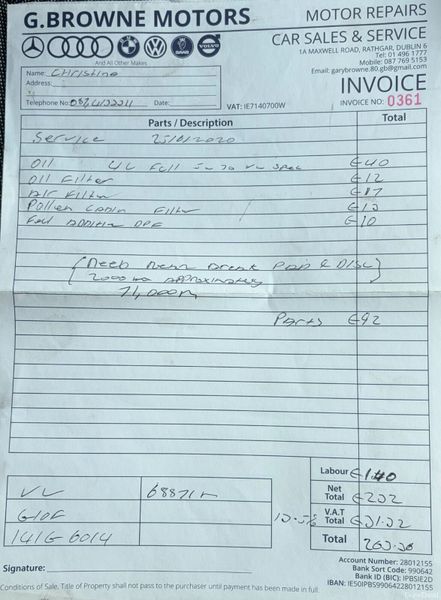 G.BROWNE MOTORS
MOTOR REPAIRS
CAR SALES & SERVICE
1A MAXWELL ROAD, RATHGAR, DUBLIN 6
Tel: 01 496 1777
Mobile: 087 769 5153
Email: garybrowne.80.gb@gmail.com
SAAB VOLVO
And All Other Makes
INVOICE
Name: Christina
Address:
Telephone No: Date:
VAT: IE7140700W
INVOICE NO: 0361
Parts / Description Total
Service
Oil 4L Full Spec €40
Oil Filter €12
Air Filter €17
Pollen Cabin Filter €13
Additive DPF €10
(Need New Break Pad & Disc)
2000 Approximately
71,000
Parts €92
Labour €140
Net Total €232
13.5% V.A.T Total €31.32
Total 263.
68871
GOLF
141G 6014
Account Number: 28012155
Bank Sort Code: 990642
Bank ID (BIC): IPBSIE2D
IBAN: IE50IPBS99064228012155
Signature:
Conditions of Sale, Title of Property shall not pass to the purchaser until payment has been made in full